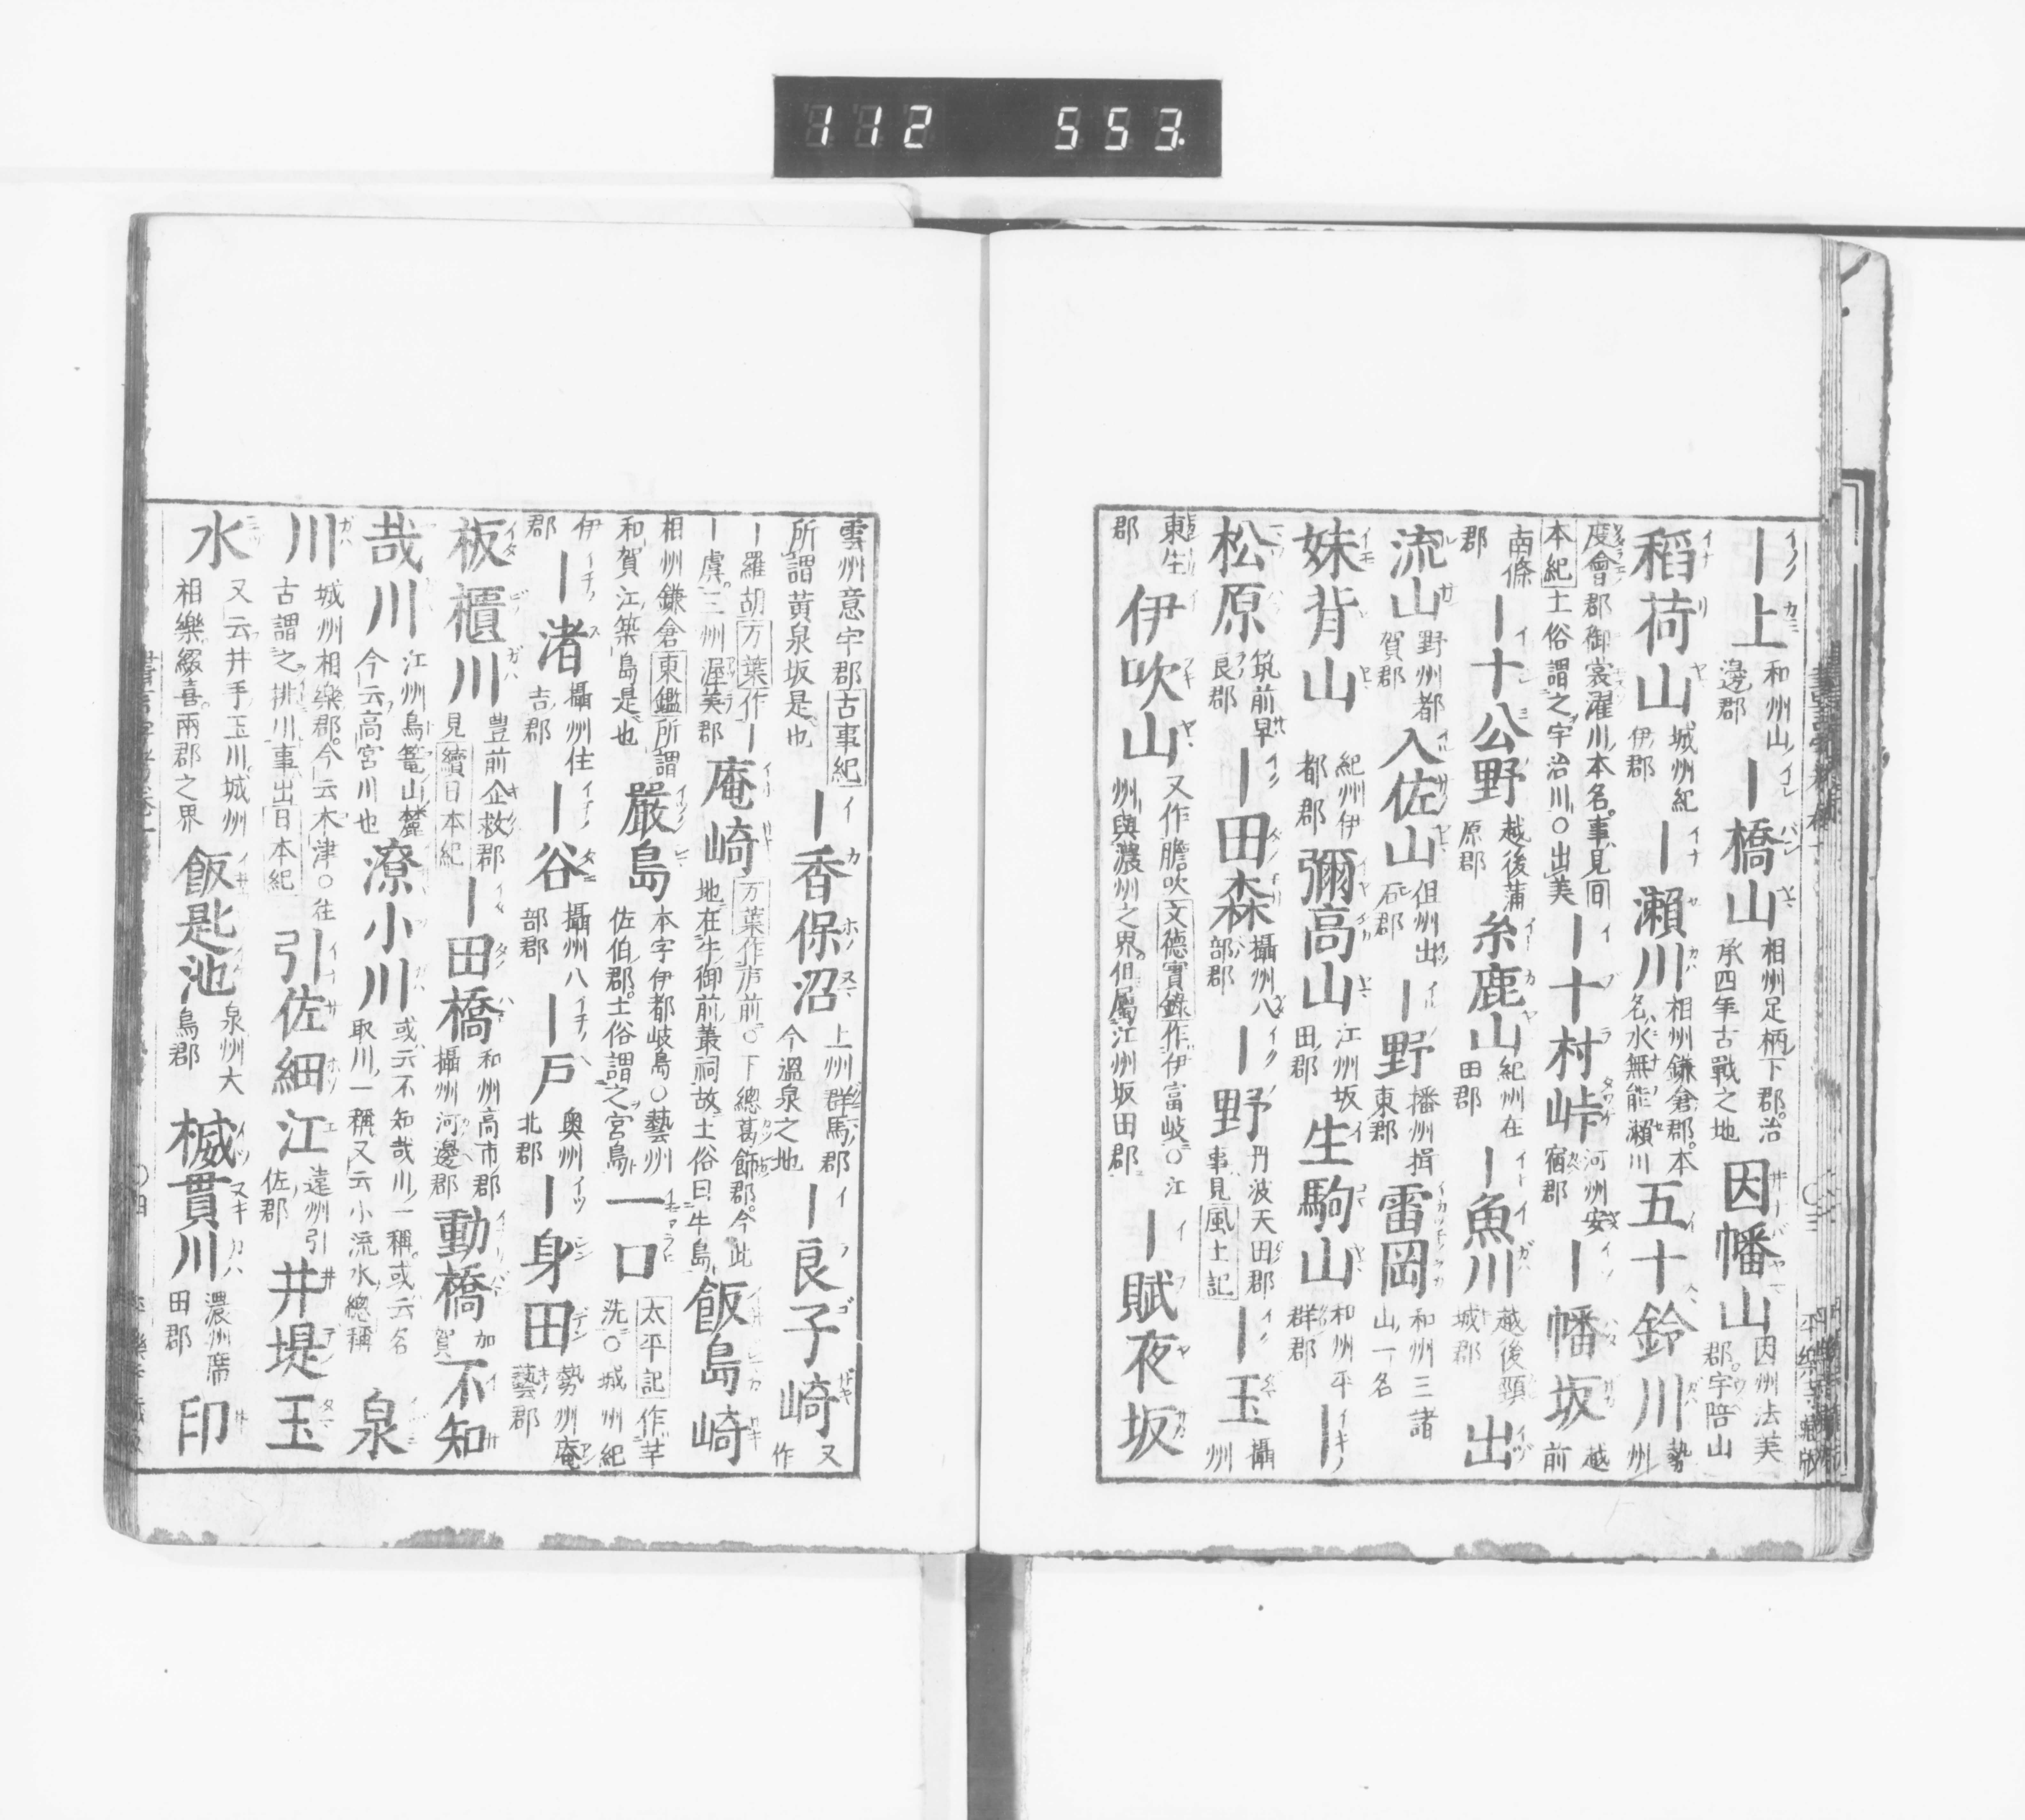 112 553.
｜上 和州山邊郡 ｜橋山 相州足柄下郡。治承四年古戰之地 因幡山 因州法美郡。宇陪山
稻荷山 城州紀伊郡 ｜瀨川 相州鎌倉郡。本名水無能瀨川 五十鈴川 勢州
度會郡御裳濯川本名。事見日本紀土俗謂之宇治川○出美 ｜十村峠 河州安宿郡 ｜幡坂 越前
南條郡 ｜十公野 越後蒲原郡 糸鹿山 紀州在田郡 ｜魚川 越後頸城郡 出
流山 野州都賀郡 入佐山 但州出石郡 ｜野 播州揖東郡 雷岡 和州三諸山一名
妹背山 紀州伊都郡 彌高山 江州坂田郡 生駒山 和州平群郡 ｜
松原 筑前早良郡 ｜田森 攝州八部郡 ｜野 丹波天田郡事見風土記 ｜玉 攝州
東生郡 伊吹山 又作膽吹文德實錄作伊富岐○江州與濃州之界。但屬江州坂田郡 ｜賦夜坂
雲州意宇郡古事紀所謂黃泉坂是也 ｜香保沼 上州群馬郡今溫泉之地 ｜良子崎 又作
｜羅胡万葉作｜｜虞。三州渥美郡 庵崎 万葉作庐前○下總葛飾郡。今此地在牛御前叢祠故土俗曰牛島 飯島崎
相州鎌倉東鑑所謂和賀江築島是也 嚴島 本字伊都岐島○藝州佐伯郡。土俗謂之宮島 一口 太平記作芋洗○城州紀
伊郡 ｜渚 攝州住吉郡 ｜谷 攝州八部郡 ｜戸 奥州北郡 ｜身田 勢州庵藝郡
板櫃川 豊前企救郡見續日本紀 ｜田橋 和州高市郡攝州河邊郡 動橋 加賀 不知
哉川 江州鳥籠山麓今云高宮川也 潦小川 或云不知哉川一稱。或云名取川一稱又云小流水總稱 泉
川 城州相樂郡。今云木津○徃古謂之挑川事出日本紀 引佐細江 遠州引佐郡 井堤玉
水 又云井手玉川。城州相樂綴喜兩郡之界 飯匙池 泉州大鳥郡 樴貫川 濃州席田郡 印